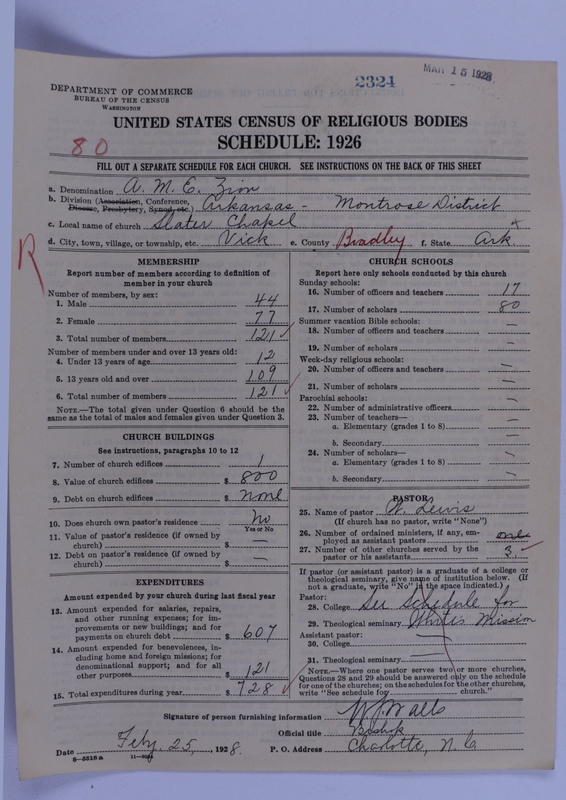 2324
MAR 15 1928
DEPARTMENT OF COMMERCE
BUREAU OF THE CENSUS
WASHINGTON
UNITED STATES CENSUS OF RELIGIOUS BODIES
SCHEDULE: 1926
80
FILL OUT A SEPARATE SCHEDULE FOR EACH CHURCH. SEE INSTRUCTIONS ON THE BACK OF THIS SHEET
a. Denomination A. M. E. Zion
b. Division (Association, Conference, Diocese, Presbytery, Synod, etc.) Arkansas - Montrose District
c. Local name of church Slater Chapel
d. City, town, village, or township, etc. Vick e. County Bradley f. State Ark
R
MEMBERSHIP
Report number of members according to definition of
member in your church
Number of members, by sex:
1. Male 44
2. Female 77
3. Total number of members 121
Number of members under and over 13 years old:
4. Under 13 years of age 12
5. 13 years old and over 109
6. Total number of members 121
NOTE.—The total given under Question 6 should be the
same as the total of males and females given under Question 3.
CHURCH BUILDINGS
See instructions, paragraphs 10 to 12
7. Number of church edifices 1
8. Value of church edifices $ 800
9. Debt on church edifices $ None
10. Does church own pastor's residence No
Yes or No
11. Value of pastor's residence (if owned by
church) $ —
12. Debt on pastor's residence (if owned by
church) $ —
EXPENDITURES
Amount expended by your church during last fiscal year
13. Amount expended for salaries, repairs,
and other running expenses; for im-
provements or new buildings; and for
payments on church debt $ 607
14. Amount expended for benevolences, in-
cluding home and foreign missions; for
denominational support; and for all
other purposes $ 121
15. Total expenditures during year $ 728
CHURCH SCHOOLS
Report here only schools conducted by this church
Sunday schools:
16. Number of officers and teachers 17
17. Number of scholars 80
Summer vacation Bible schools:
18. Number of officers and teachers —
19. Number of scholars —
Week-day religious schools:
20. Number of officers and teachers —
21. Number of scholars —
Parochial schools:
22. Number of administrative officers —
23. Number of teachers—
a. Elementary (grades 1 to 8) —
b. Secondary —
24. Number of scholars—
a. Elementary (grades 1 to 8) —
b. Secondary —
PASTOR
25. Name of pastor Lewis
(If church has no pastor, write "None")
26. Number of ordained ministers, if any, em-
ployed as assistant pastors
27. Number of other churches served by the
pastor or his assistants 3
If pastor (or assistant pastor) is a graduate of a college or
theological seminary, give name of institution below. (If
not a graduate, write "No" in the space indicated.)
Pastor:
28. College See Schedule for
29. Theological seminary Whites Mission
Assistant pastor:
30. College
31. Theological seminary
NOTE.—Where one pastor serves two or more churches,
Questions 28 and 29 should be answered only on the schedule
for one of the churches; on the schedules for the other churches,
write "See schedule for church."
Signature of person furnishing information W J Walls
Official title Bishop
Date Feby. 25, 1928. P. O. Address Charlotte, N. C.
8-5518a